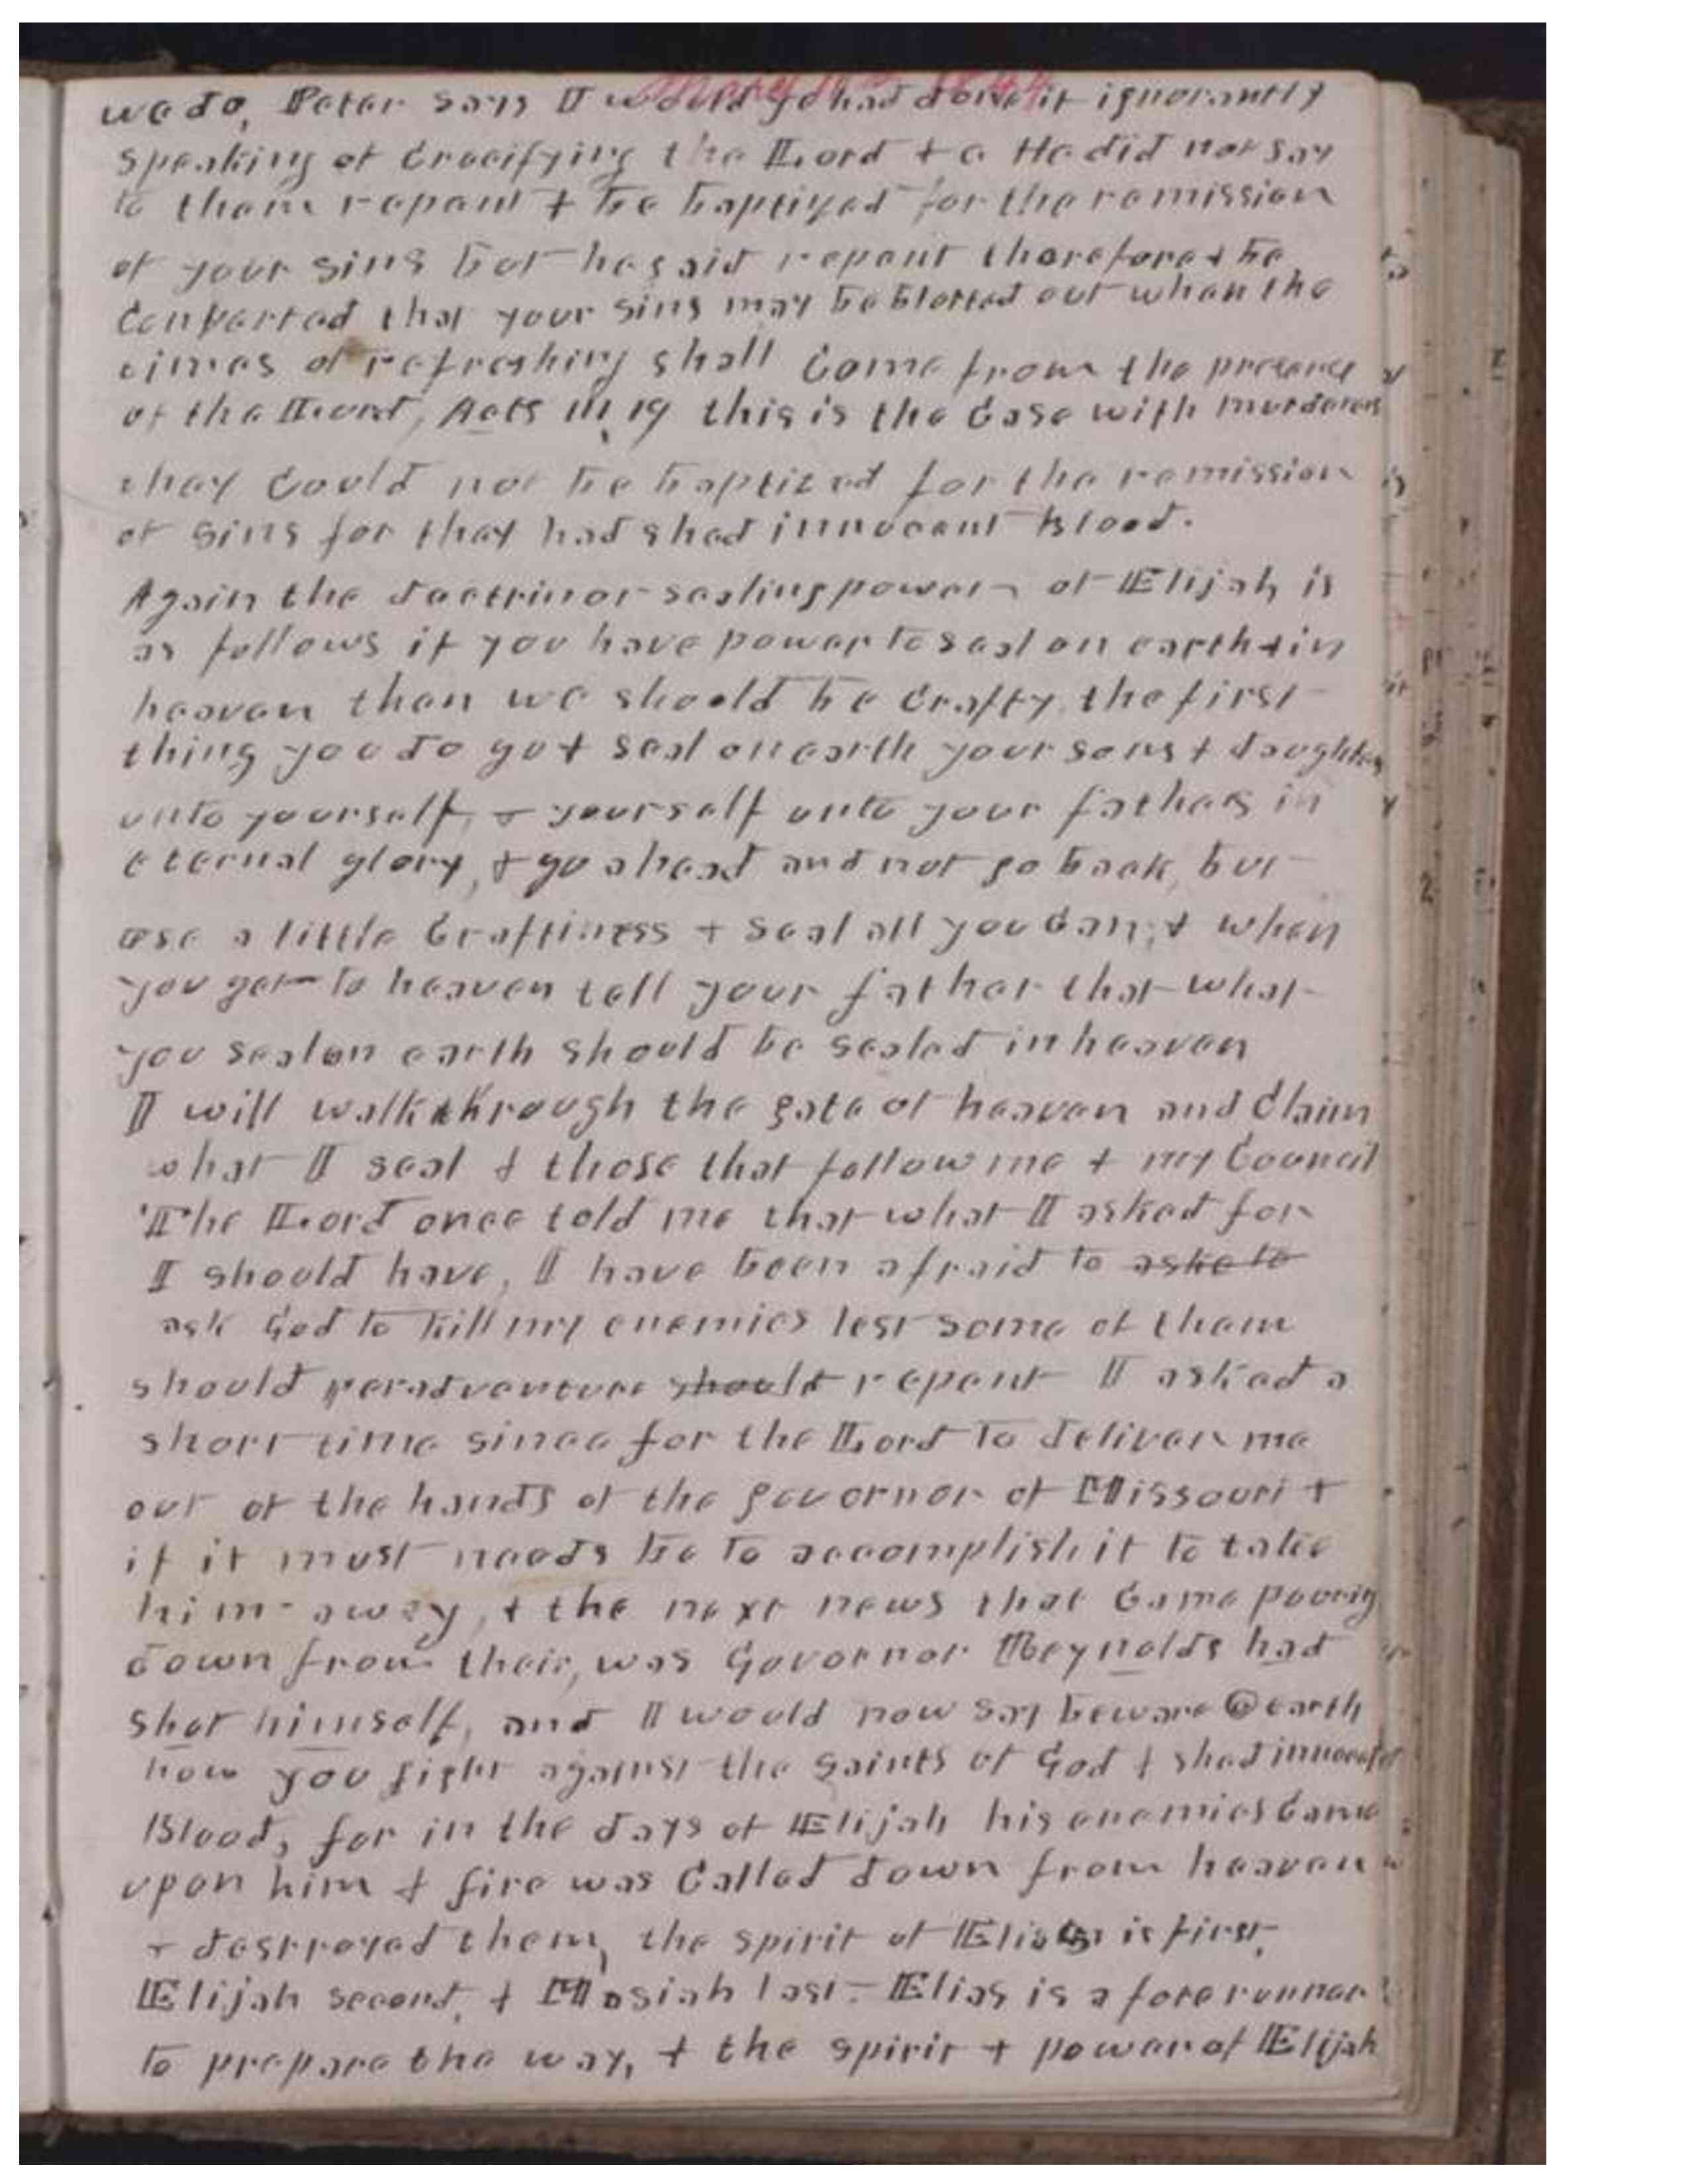 March 10th 1844
we do, Peter says I would ye had done it ignorantly
speaking of Crucifying the Lord & c He did not say
to them repent & be baptized for the remission
of your sins but he said repent therefore & be
Converted that your sins may be blotted out when the
times of refreshing shall Come from the presence
of the Lord, Acts III, 19 this is the Case with murderers
they Could not be baptized for the remission
of sins for they had shed innocent Blood.
Again the doctrin or sealing power of Elijah is
as follows if you have power to seal on earth & in
heaven then we should be Crafty, the first
thing you do go & seal on earth your sons & daughters
unto yourself, & yourself unto your fathers in
eternal glory, & go ahead and not go back, but
use a little Craftiness & seal all you Can; & when
you get to heaven tell your father that what
you seal on earth should be sealed in heaven
I will walk through the gate of heaven and Claim
what I seal & those that follow me & my Council
The Lord once told me that what I asked for
I should have, I have been afraid to aske to
ask God to kill my enemies lest some of them
should peradventure should repent I asked a
short time since for the Lord to deliver me
out of the hands of the governor of Missouri &
if it must needs be to accomplish it to take
him away, & the next news that Came pouring
down from their, was Governor Reynolds had
shot himself, and I would now say beware O earth
how you fight against the saints of God & shed innocent
Blood, for in the days of Elijah his enemies Came
upon him & fire was Called down from heaven
& destroyed them, the spirit of Elias is first,
Elijah second, & Mesiah last. Elias is a fore runner
to prepare the way, & the spirit & power of Elijah